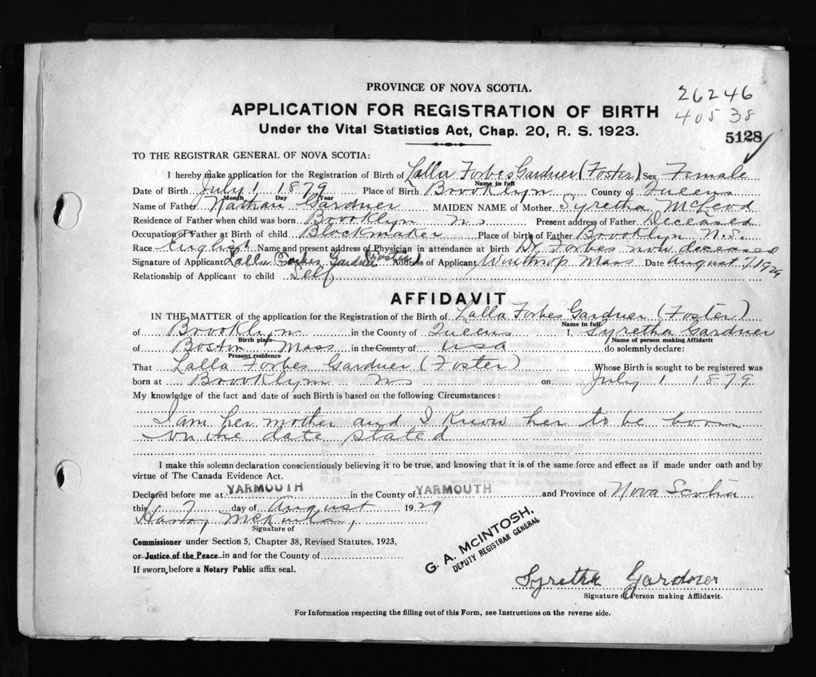 PROVINCE OF NOVA SCOTIA.
26246
40538
APPLICATION FOR REGISTRATION OF BIRTH
Under the Vital Statistics Act, Chap. 20, R. S. 1923.
5128
TO THE REGISTRAR GENERAL OF NOVA SCOTIA:
I hereby make application for the Registration of Birth of Lalla Forbes Gardner (Foster) Sex Female
Name in full
Date of Birth July 1 1879 Place of Birth Brooklyn County of Queens
Month Day Year
Name of Father Nathan Gardner MAIDEN NAME of Mother Syretha McLeod
Residence of Father when child was born Brooklyn N.S. Present address of Father Deceased
Occupation of Father at Birth of child Blockmaker Place of birth of Father Brooklyn, N.S.
Race English Name and present address of Physician in attendance at birth Dr. Forbes now deceased
Signature of Applicant Lalla Forbes Gardner (Foster) Address of Applicant Winthrop Mass Date August 7/1929
Relationship of Applicant to child Self
AFFIDAVIT
IN THE MATTER of the application for the Registration of the Birth of Lalla Forbes Gardner (Foster)
Name in full
of Brooklyn in the County of Queens I, Syretha Gardner
Birth place Name of person making Affidavit
of Boston Mass in the County of USA do solemnly declare:
Present residence
That Lalla Forbes Gardner (Foster) Whose Birth is sought to be registered was
born at Brooklyn NS on July 1 1879
My knowledge of the fact and date of such Birth is based on the following Circumstances:
I am her mother and I know her to be born
on the date stated
I make this solemn declaration conscientiously believing it to be true, and knowing that it is of the same force and effect as if made under oath and by
virtue of The Canada Evidence Act.
Declared before me at YARMOUTH in the County of YARMOUTH and Province of Nova Scotia
this 7 day of August 1929
Signature of
Commissioner under Section 5, Chapter 38, Revised Statutes, 1923,
or Justice of the Peace in and for the County of
If sworn before a Notary Public affix seal.
G. A. McINTOSH,
DEPUTY REGISTRAR GENERAL
Syretha Gardner
Signature of Person making Affidavit.
For Information respecting the filling out of this Form, see Instructions on the reverse side.